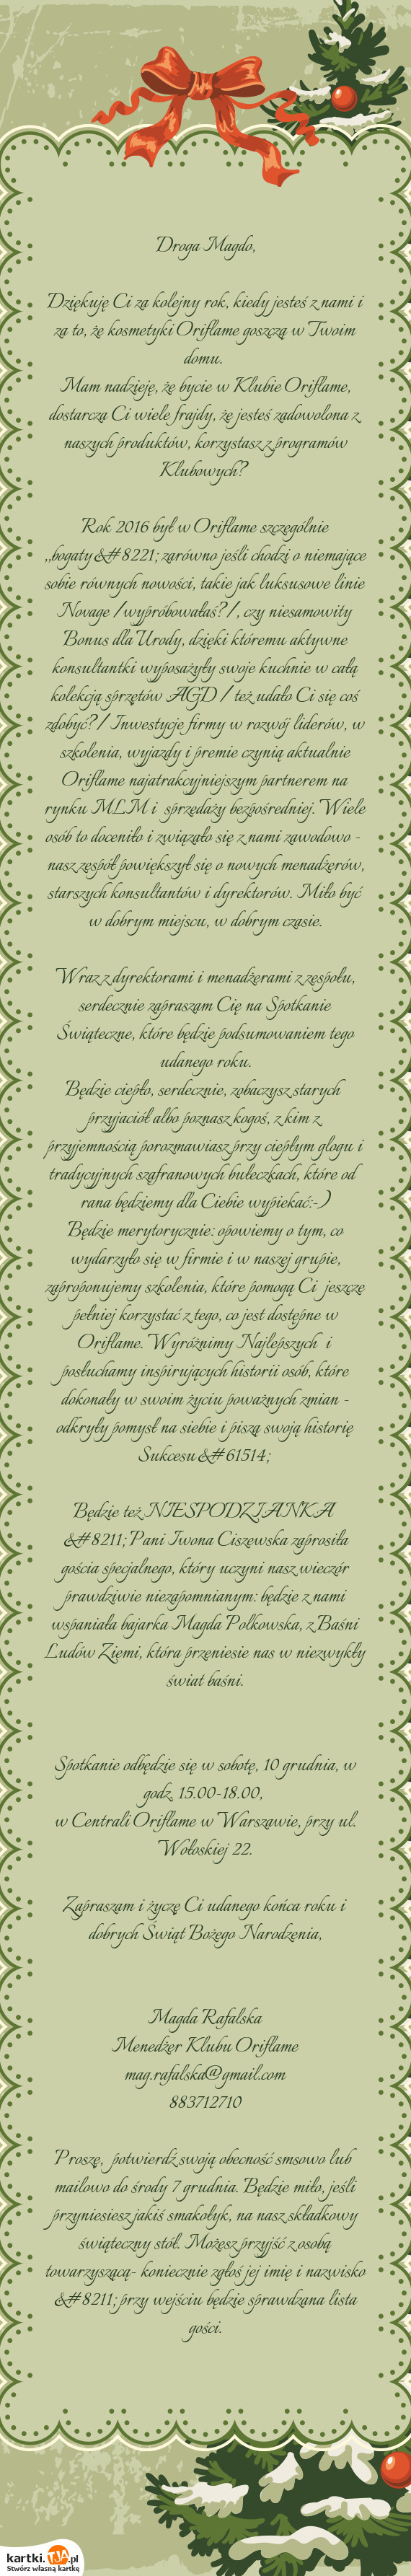 Droga Magdo,
Dziękuję Ci za kolejny rok, kiedy jesteś z nami i
za to, że kosmetyki Oriflame goszczą w Twoim
domu.
Mam nadzieję, że bycie w Klubie Oriflame,
dostarcza Ci wiele frajdy, że jesteś zadowolona z
naszych produktów, korzystasz z programów
Klubowych?
Rok 2016 był w Oriflame szczególnie
,,bogaty&#8221; zarówno jeśli chodzi o niemające
sobie równych nowości, takie jak luksusowe linie
Novage /wypróbowałaś?/, czy niesamowity
Bonus dla Urody, dzięki któremu aktywne
konsultantki wyposażyły swoje kuchnie w całą
kolekcją sprzętów AGD / też udało Ci się coś
zdobyć?/ Inwestycje firmy w rozwój liderów, w
szkolenia, wyjazdy i premie czynią aktualnie
Oriflame najatrakcyjniejszym partnerem na
rynku MLM i sprzedaży bezpośredniej. Wiele
osób to doceniło i związało się z nami zawodowo -
nasz zespół powiększył się o nowych menadżerów,
starszych konsultantów i dyrektorów. Miło być
w dobrym miejscu, w dobrym czasie.
Wraz z dyrektorami i menadżerami z zespołu,
serdecznie zapraszam Cię na Spotkanie
Świąteczne, które będzie podsumowaniem tego
udanego roku.
Będzie ciepło, serdecznie, zobaczysz starych
przyjaciół albo poznasz kogoś, z kim z
przyjemnością porozmawiasz przy ciepłym glogu i
tradycyjnych szafranowych bułeczkach, które od
rana będziemy dla Ciebie wypiekać:-)
Będzie merytorycznie: opowiemy o tym, co
wydarzyło się w firmie i w naszej grupie,
zaproponujemy szkolenia, które pomogą Ci jeszcze
pełniej korzystać z tego, co jest dostępne w
Oriflame. Wyróżnimy Najlepszych i
posłuchamy inspirujących historii osób, które
dokonały w swoim życiu poważnych zmian -
odkryły pomysł na siebie i piszą swoją historię
Sukcesu &#61514;
Będzie też NIESPODZIANKA
&#8211; Pani Iwona Ciszewska zaprosiła
gościa specjalnego, który uczyni nasz wieczór
prawdziwie niezapomnianym: będzie z nami
wspaniała bajarka Magda Polkowska, z Baśni
Ludów Ziemi, która przeniesie nas w niezwykły
świat baśni.
Spotkanie odbędzie się w sobotę, 10 grudnia, w
godz. 15.00-18.00,
w Centrali Oriflame w Warszawie, przy ul.
Wołoskiej 22.
Zapraszam i życzę Ci udanego końca roku i
dobrych Świąt Bożego Narodzenia,
Magda Rafalska
Menedżer Klubu Oriflame
mag.rafalska@gmail.com
883712710
Proszę, potwierdź swoją obecność smsowo lub
mailowo do środy 7 grudnia. Będzie miło, jeśli
przyniesiesz jakiś smakołyk, na nasz składkowy
świąteczny stół. Możesz przyjść z osobą
towarzyszącą- koniecznie zgłoś jej imię i nazwisko
&#8211; przy wejściu będzie sprawdzana lista
gości.
kartki.TJA.pl
Stwórz własną kartkę